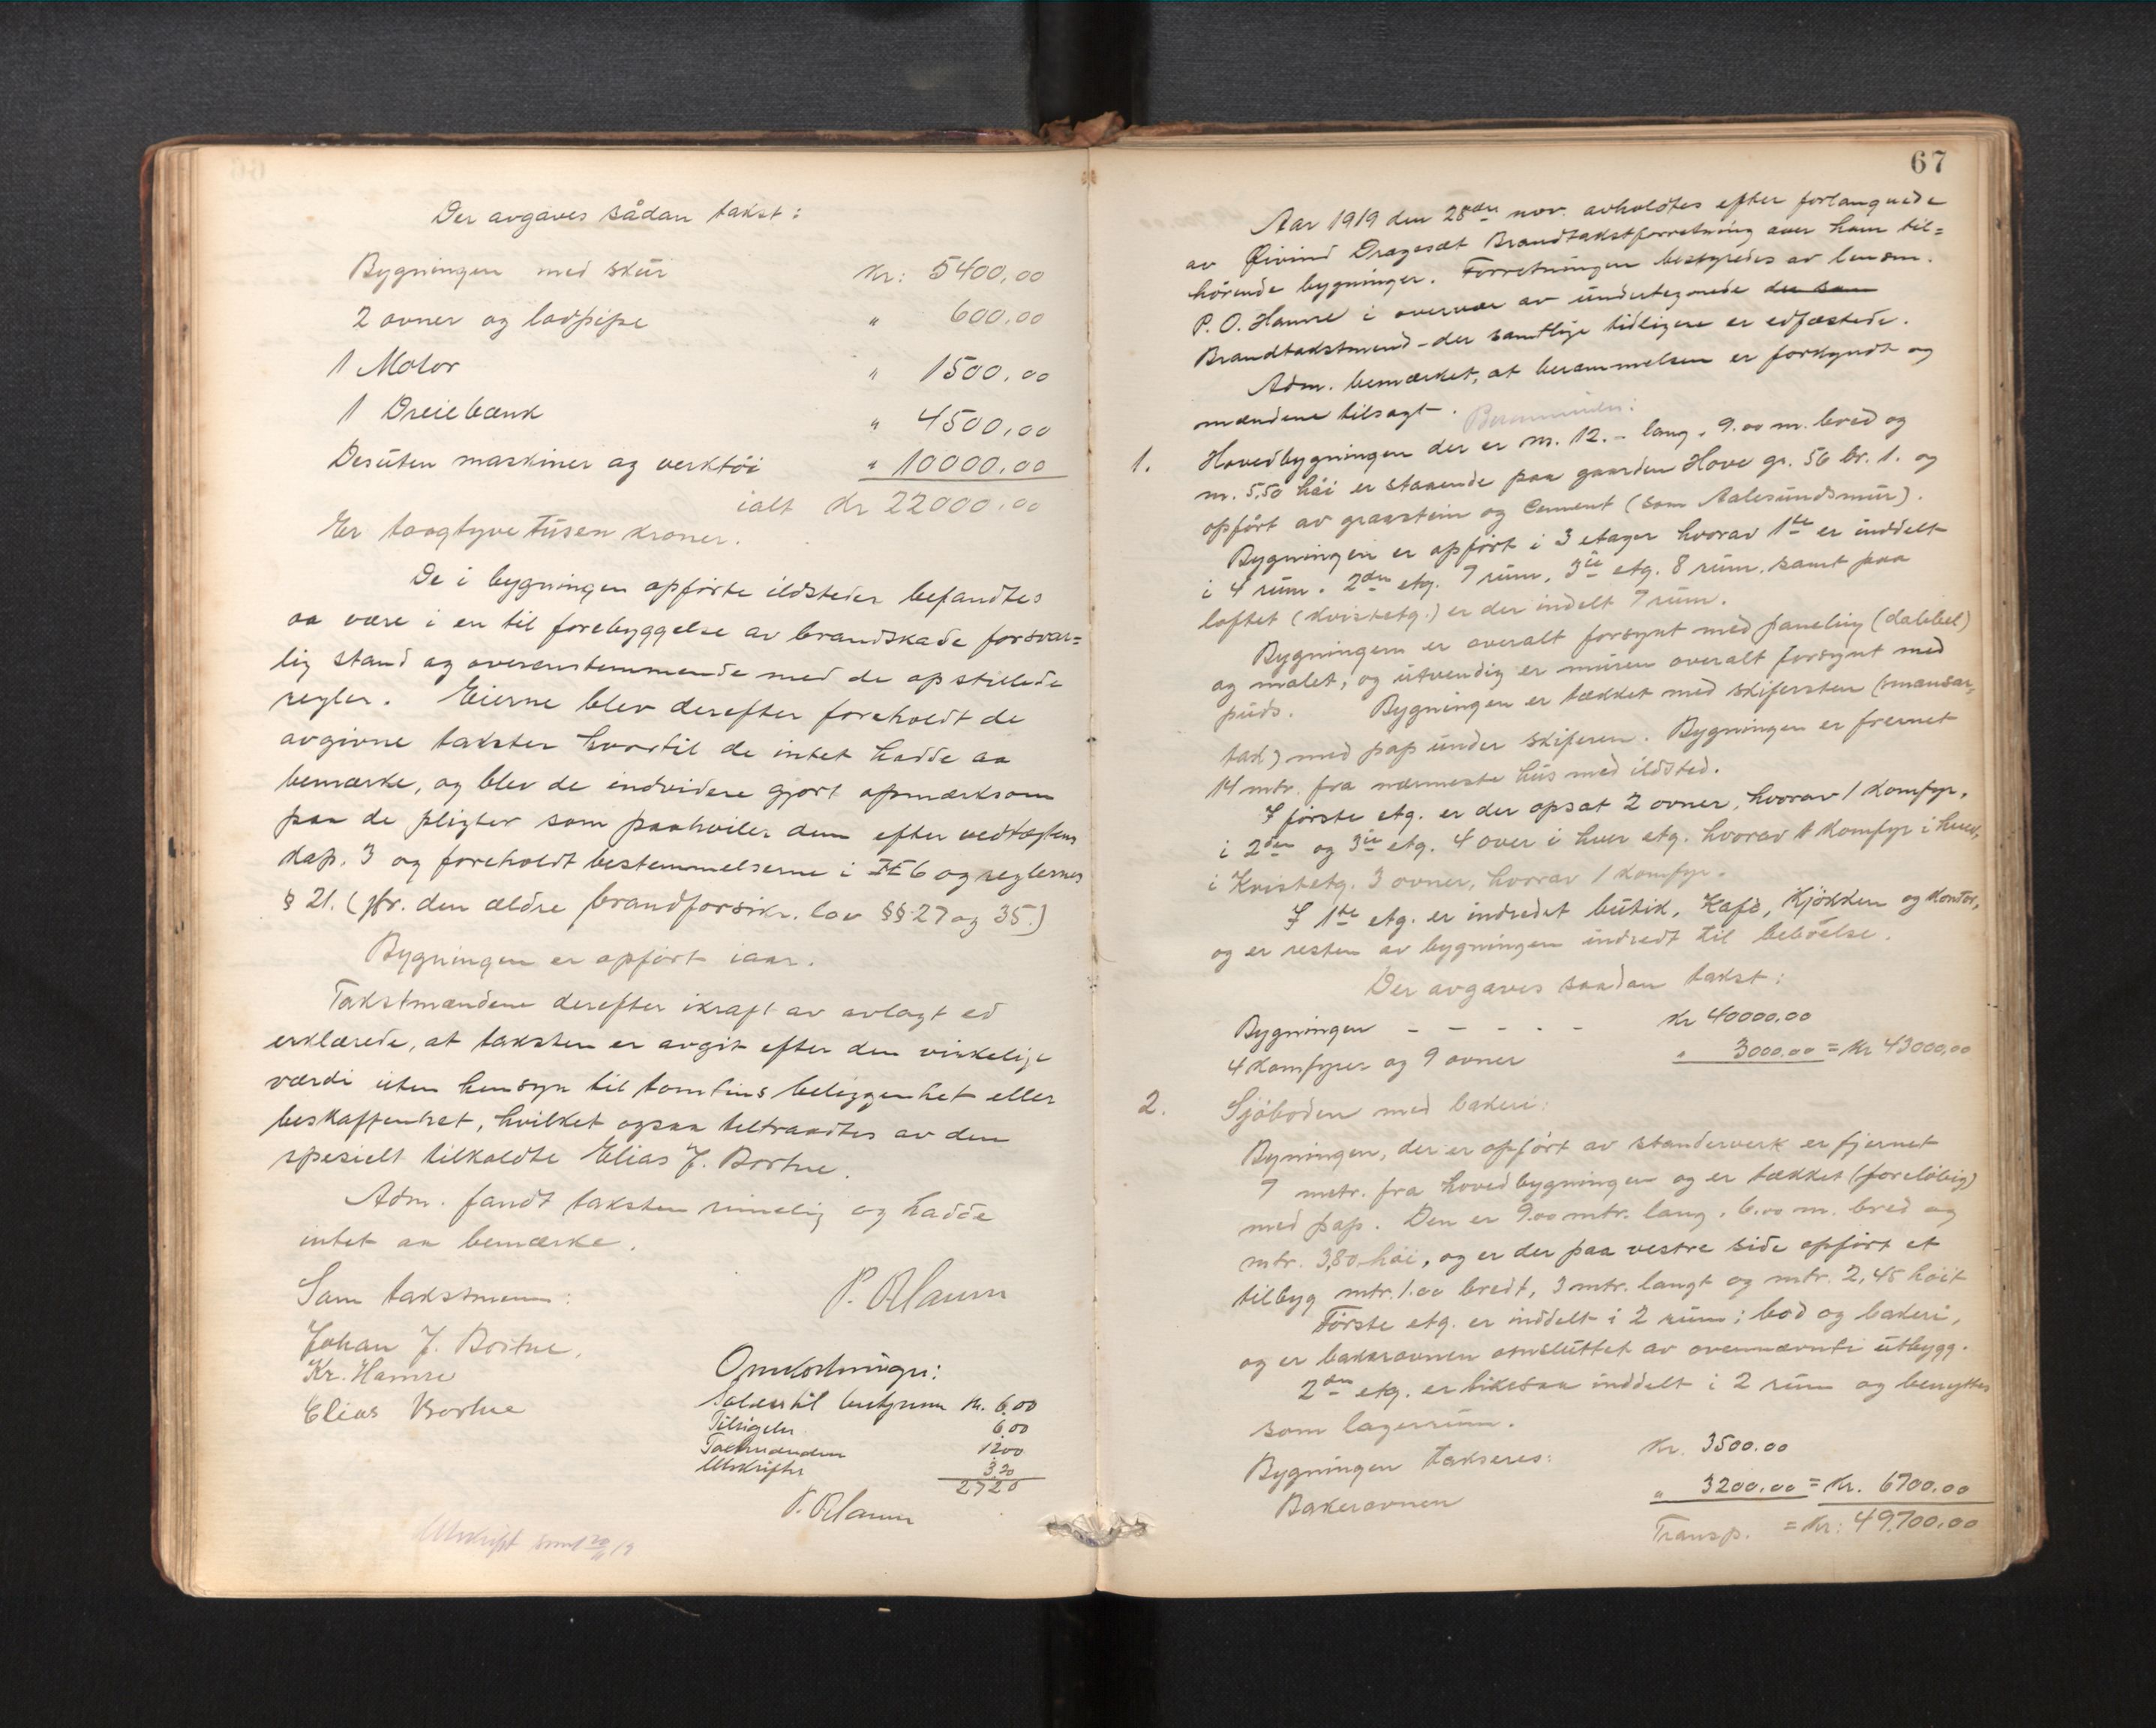 Der avgaves sådan takst:
Bygningen med skur kr: 5400,00
2 ovner og lodpipe " 600,00
1 Motor " 1500,00
1 Dreiebænk " 4500,00
Desuten maskiner og verktöi " 10000,00
ialt Kr 22000,00
Er toogtyve tusen kroner.
De i bygningen opförte ildsteder befandtes
aa være i en til forebyggelse av brandskade forsvar=
lig stand og overensstemmende med de opstillede
regler. Eierne blev derefter foreholdt de
avgivne takster hvortil de intet hadde aa
bemærke, og blev de endvidere gjort opmerksom
paa de pligter som paahviler dem efter vedtægtens
kap. 3 og foreholdt bestemmelserne i 6 og reglernes
§ 21. (jfr. den ældre brandforsikr. lov §§ 27 og 35.)
Bygningen er opfört iaar.
Takstmændene derefter ikraft av avlagt ed
erklærede, at taksten er avgit efter den virkelige
værdi uten hensyn til tomtens beliggenhet eller
beskaffenhet, hvilket ogsaa tiltraadtes av den
spesielt tilkaldte Elias J. Bortne.
Adm. fandt taksten rimelig og hadde
intet aa bemærke.
Som takstmenn:
P. O. Hamre
Johan J. Bortne,
Kr. Hamre
Elias Bortne
Omkostninger:
til bestyreren Kr. 6.00
Tilsigelse 6.00
Takstmændene 12.00
Utskrifter 3.20
27 20
P. O. Hamre
Utskrift sendt 19
67
Aar 1919 den 28de nov. avholdtes efter forlangnede
av Eivind Dragesæt Brandtakstforretning over ham til=
hörende bygninger. Forretningen bestyredes av lensm.
P. O. Hamre i overvær av undertegnede der som
Brandtakstmend - der samtlige tidligere er edfæstede.
Adm. bemærket, at berammelsen er forkyndt og
mændene tilsagt.
1. Hovedbygningen der er m. 12.- lang, 9.00 m. bred og
m. 5,50 höi er staaende paa gaarden Hove gr. 56 br. 1. og
opfört av graasten og Cement (som Aalesundsmur).
Bygningen er opfört i 3 etager hvorav 1ste er inddelt
i 4 rum. 2den etg. 7 rum, 3die etg. 8 rum. samt paa
loftet (kvistetg.) er der indelt 7 rum.
Bygningen er overalt forsynt med paneling (dobbel)
og malet, og utvendig er muren overalt forsynt med
puds. Bygningen er tækket med skifersten (mansar=
tak) med pap under skiferen. Bygningen er frernet
14 mtr. fra nærmeste hus med ildsted.
I förste etg. er der opsat 2 ovner, hvorav 1 komfyr,
i 2den og 3die etg. 4 over i hver etg. hvorav 1 komfyr i hver,
i Kvistetg. 3 ovner, hvorav 1 komfyr.
I 1ste etg. er indredet butik, Kafè, Kjökken og kontor,
og er resten av bygningen indredt til beböelse.
Der avgaves saadan takst:
Bygningen - - - - - kr 40000,00
4 komfyrer og 9 ovner " 3000,00 = Kr 43000,00
2. Sjöboden med bakeri:
Byningen, der er opfört av standerverk er fjernet
7 mtr. fra hovedbygningen og er tækket (forelöbig)
med pap. Den er 9.00 mtr. lang, 6.00 m. bred og
mtr. 3,80 höi, og er der paa vestre side opfört et
tilbyg mtr. 1.00 bredt, 3 mtr. langt og mtr. 2,45 höit
Förste etg. er inddelt i 2 rum; bod og bakeri,
og er bakerovnen omsluttet av ovennævnte utbygg.
2den etg. er likesaa inddelt i 2 rum og benyttes
som lagerrum.
Bygningen takseres: Kr. 3500.00
Bakerovnen " 3200,00 = Kr. 6700,00
Transp. = Kr: 49.700,00